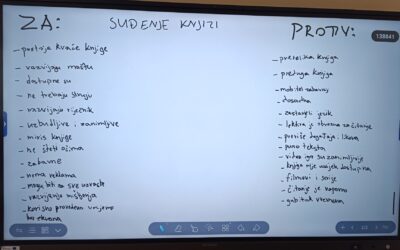 ZA:
SUĐENJE KNJIZI
PROTIV:
138841
- razvijaju maštu
- dostupne su
- ne trebaju struju
- razvijaju rječnik
- uzbudljive i zanimljive
- miris knjige
- ne šteti očima
- zabavne
- nema reklama
- mogu biti za sve uzraste
- razvijanje mišljenja
- korisno provedeno vrijeme
bez ekrana
- preteška knjiga
- preduga knjiga
- mobitel zabavniji
- dosadna
- zastarjeli jezik
- lektira je obavezna za čitanje
- previše događaja, likova
- puno teksta
- video igre su zanimljivije
knjiga nije uvijek dostupna
- filmovi i serije
- čitanje je naporno
- gubitak vremena